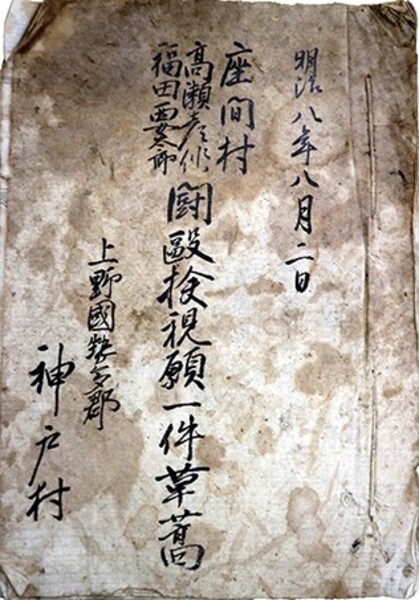 明治八年八月二日
座間村
高瀬彦
福田要太郎
鬪毆検視願一件草藁
上野國勢多郡
神戸村